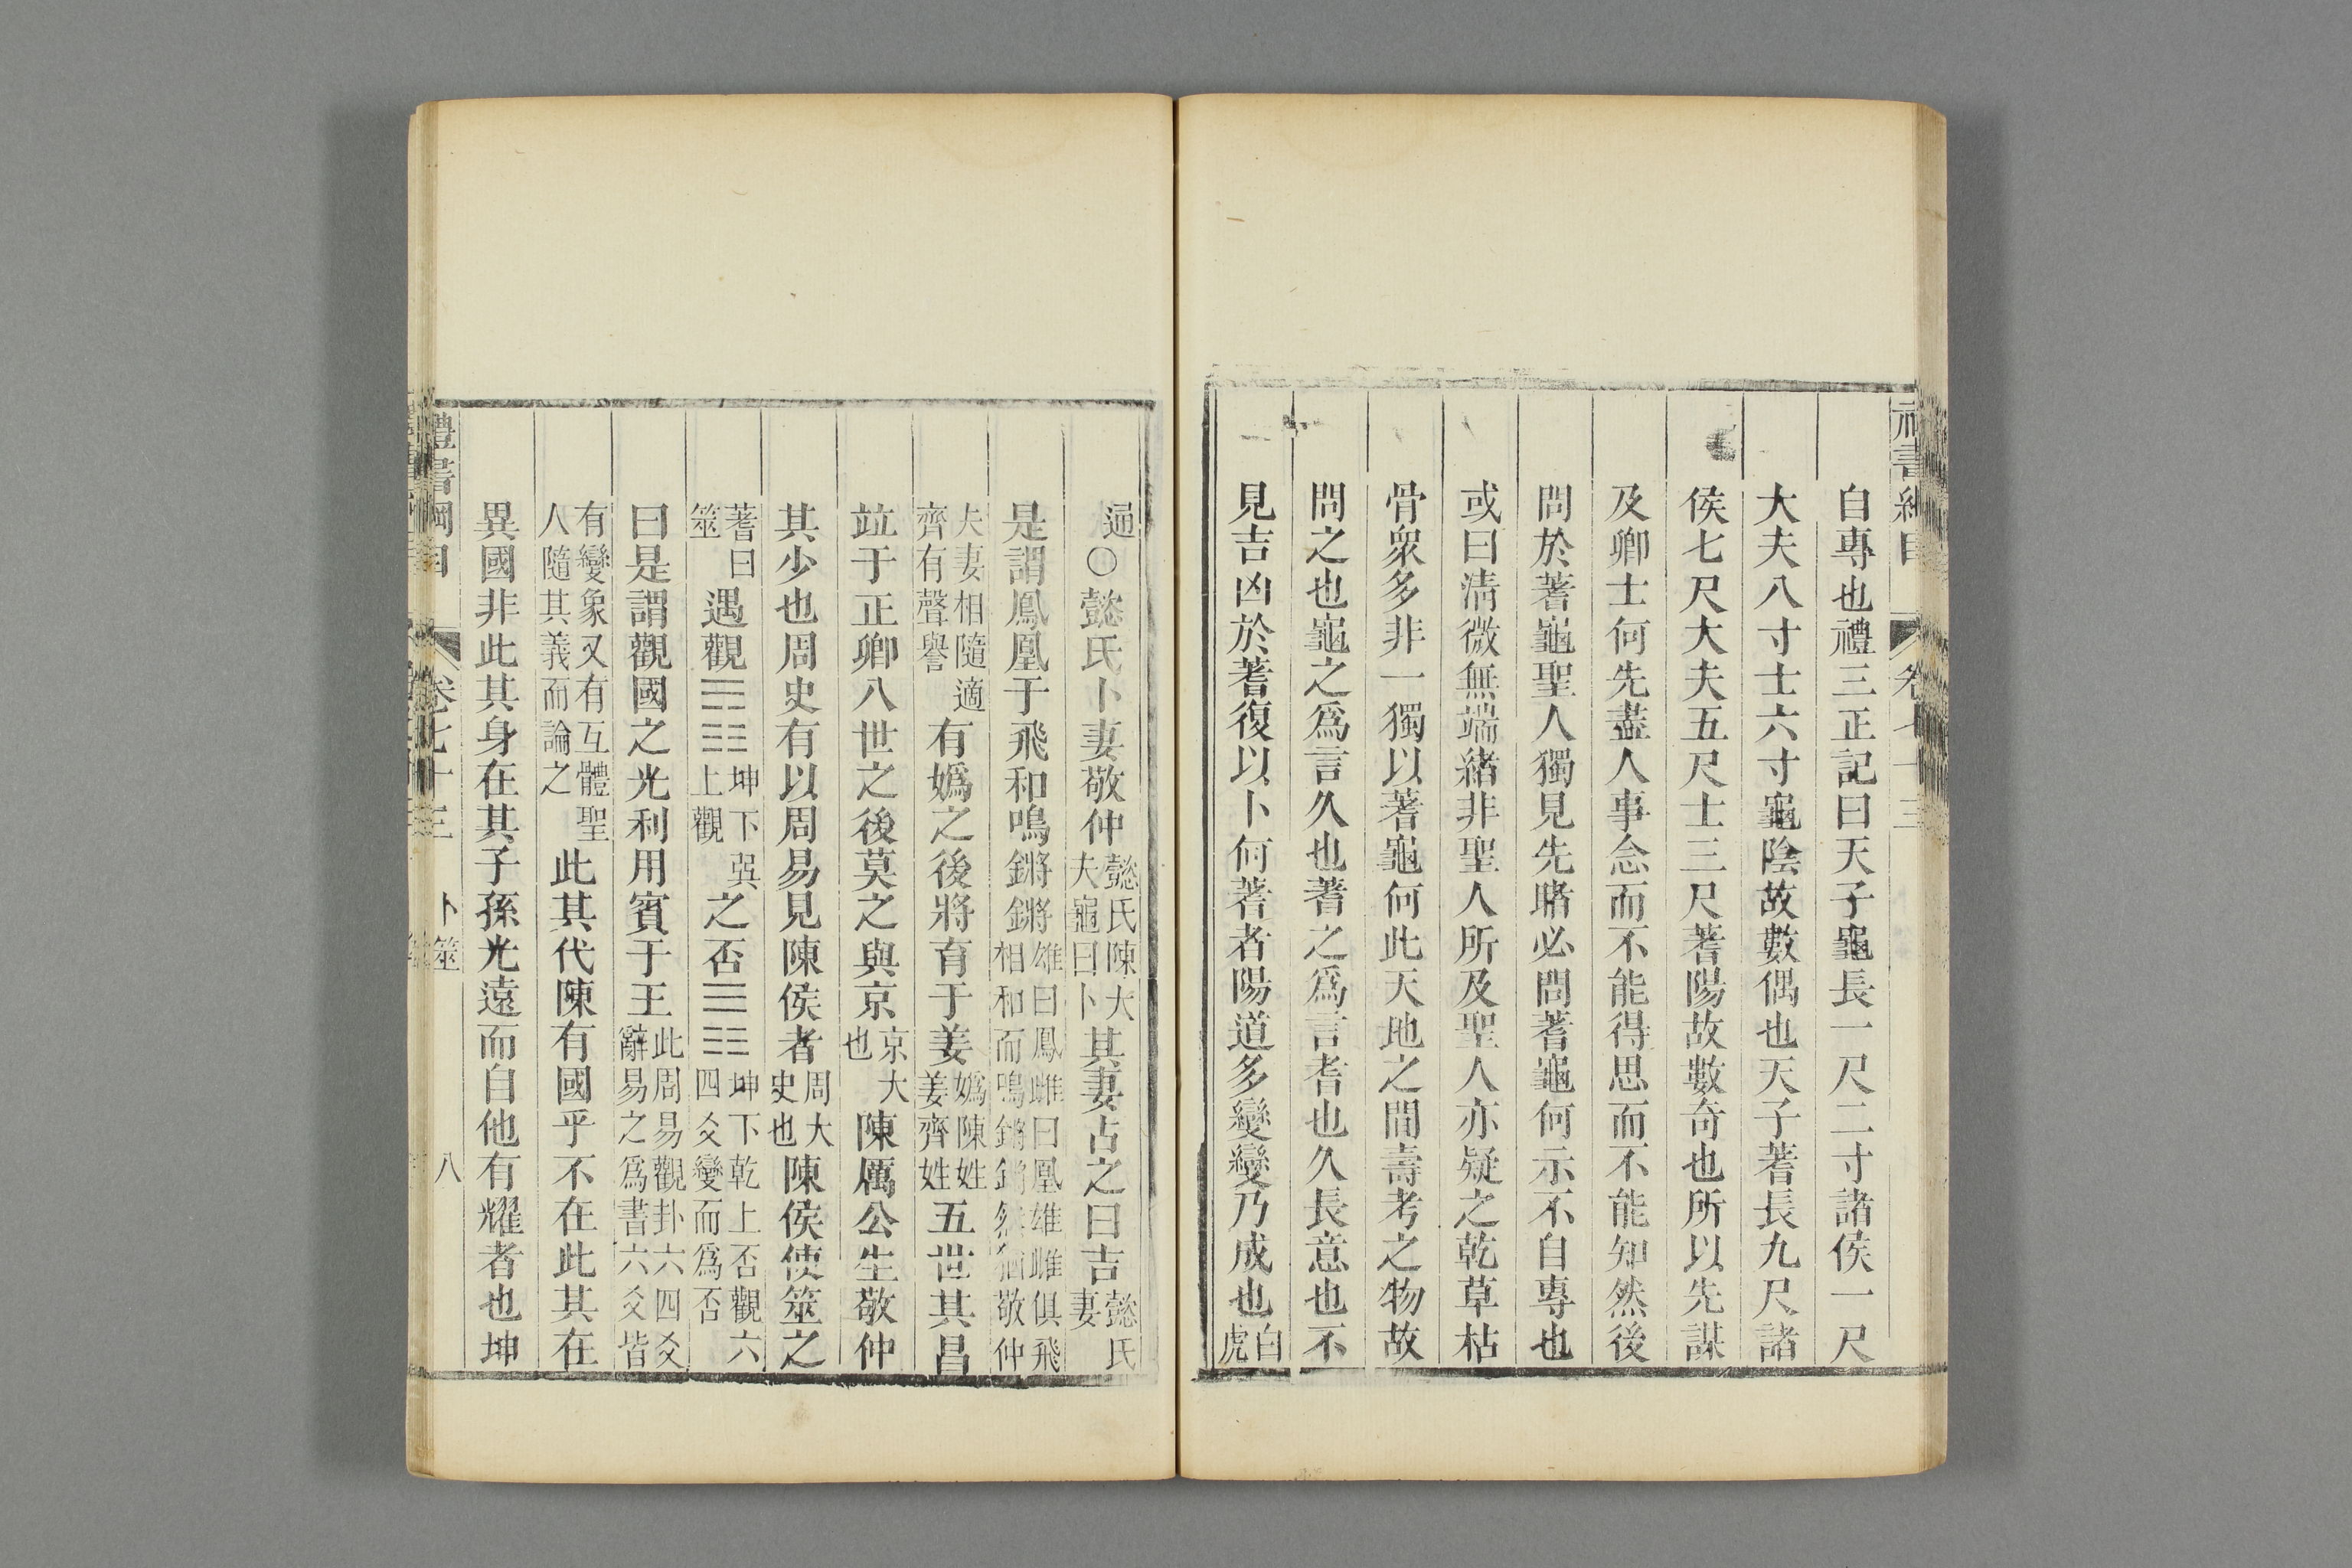 禮書綱目
卷七十三
自專也禮三正記曰天子龜長一尺二寸諸侯一尺
大夫八寸士六寸龜陰故數偶也天子蓍長九尺諸
侯七尺大夫五尺士三尺蓍陽故數奇也所以先謀
及卿士何先盡人事念而不能得思而不能知然後
問於蓍龜聖人獨見先睹必問蓍龜何示不自專也
或曰清微無端緒非聖人所及聖人亦疑之乾草枯
骨衆多非一獨以蓍龜何此天地之間壽考之物故
問之也龜之爲言久也蓍之爲言耆也久長意也不
見吉凶於蓍復以卜何蓍者陽道多變變乃成也白虎
通○懿氏卜妻敬仲懿氏陳大夫龜曰卜其妻占之曰吉懿氏妻
是謂鳳凰于飛和鳴鏘鏘雄曰鳳雌曰凰雄雌俱飛相和而鳴鏘鏘然猶敬仲
夫妻相隨適齊有聲譽有嬀之後將育于姜嬀陳姓姜齊姓五世其昌
竝于正卿八世之後莫之與京京大也陳厲公生敬仲
其少也周史有以周易見陳侯者周大史也陳侯使筮之
蓍曰筮遇觀☴☷坤下巽上觀之否☰☷坤下乾上否觀六四爻變而爲否
曰是謂觀國之光利用賓于王此周易觀卦六四爻辭易之爲書六爻皆
有變象又有互體聖人隨其義而論之此其代陳有國乎不在此其在
異國非此其身在其子孫光遠而自他有耀者也坤
禮書綱目
卷七十三
卜筮
八